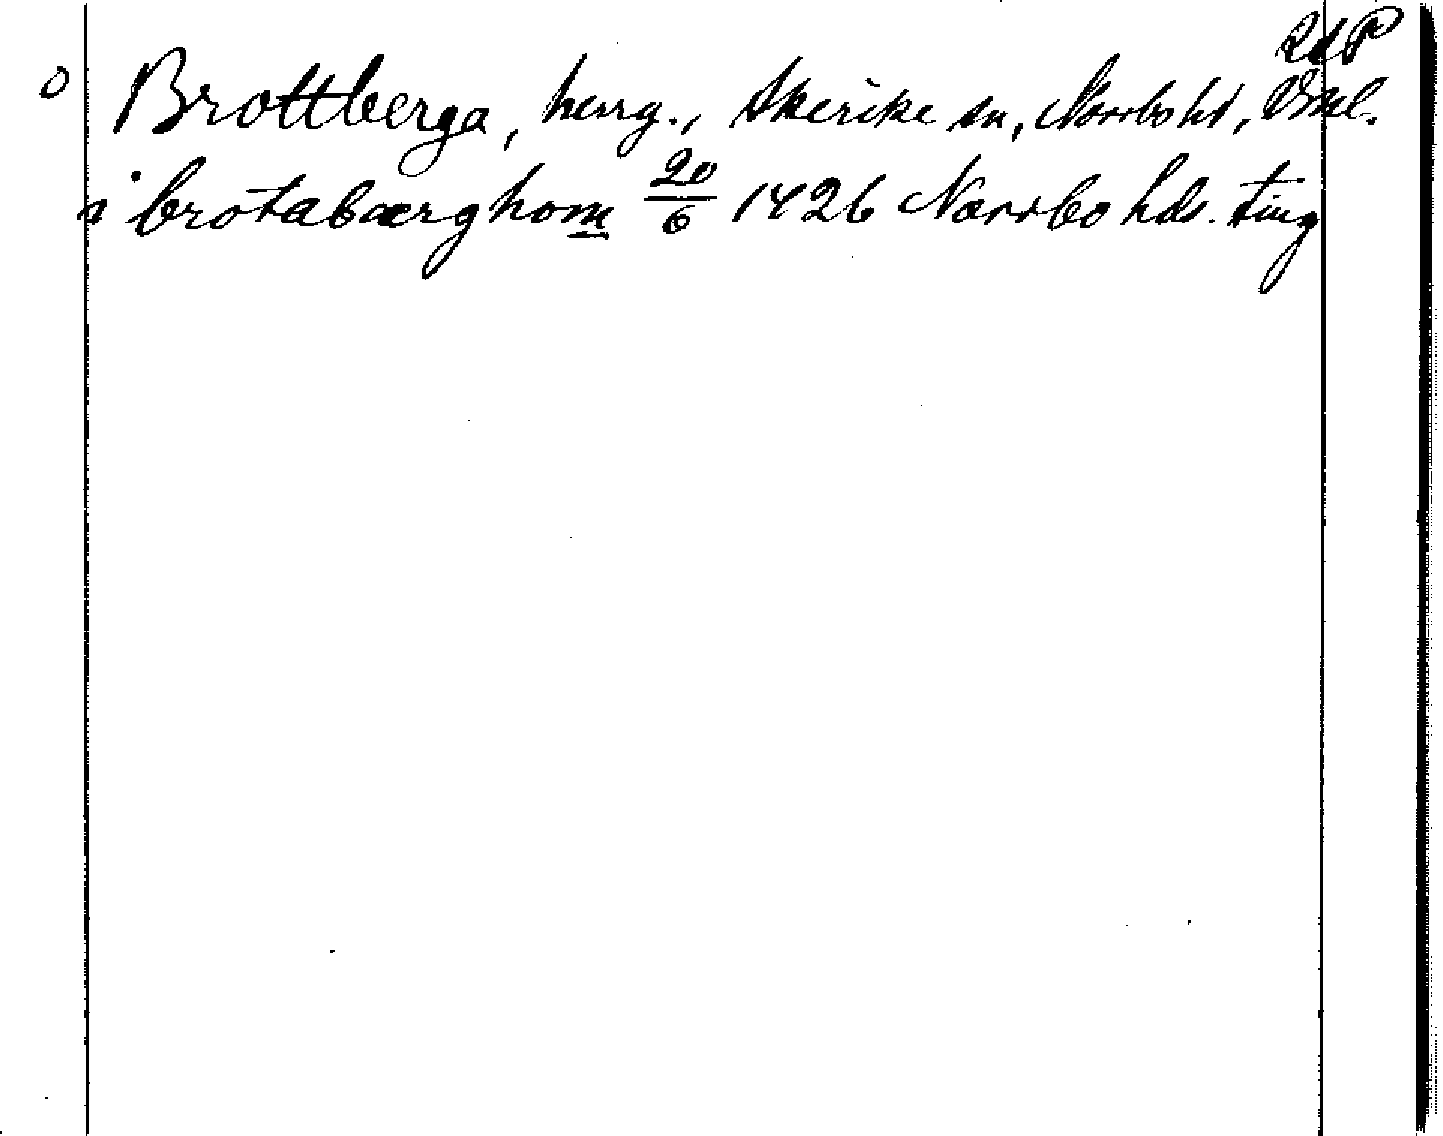 RAP
o Brottberga, herrg., Skerike sn, Norrbo hd, Vstml.
i brotabærghom 20/6 1426 Norrbo hds. ting